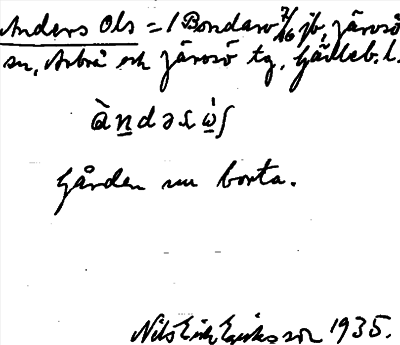 Anders Ols = 1 Bondarv 7/16 jb, Järvsö
sn, Arbrå och Järvsö tg, Gävleb. l.
Gården nu borta.
Nils Erik Eriksson 1935.